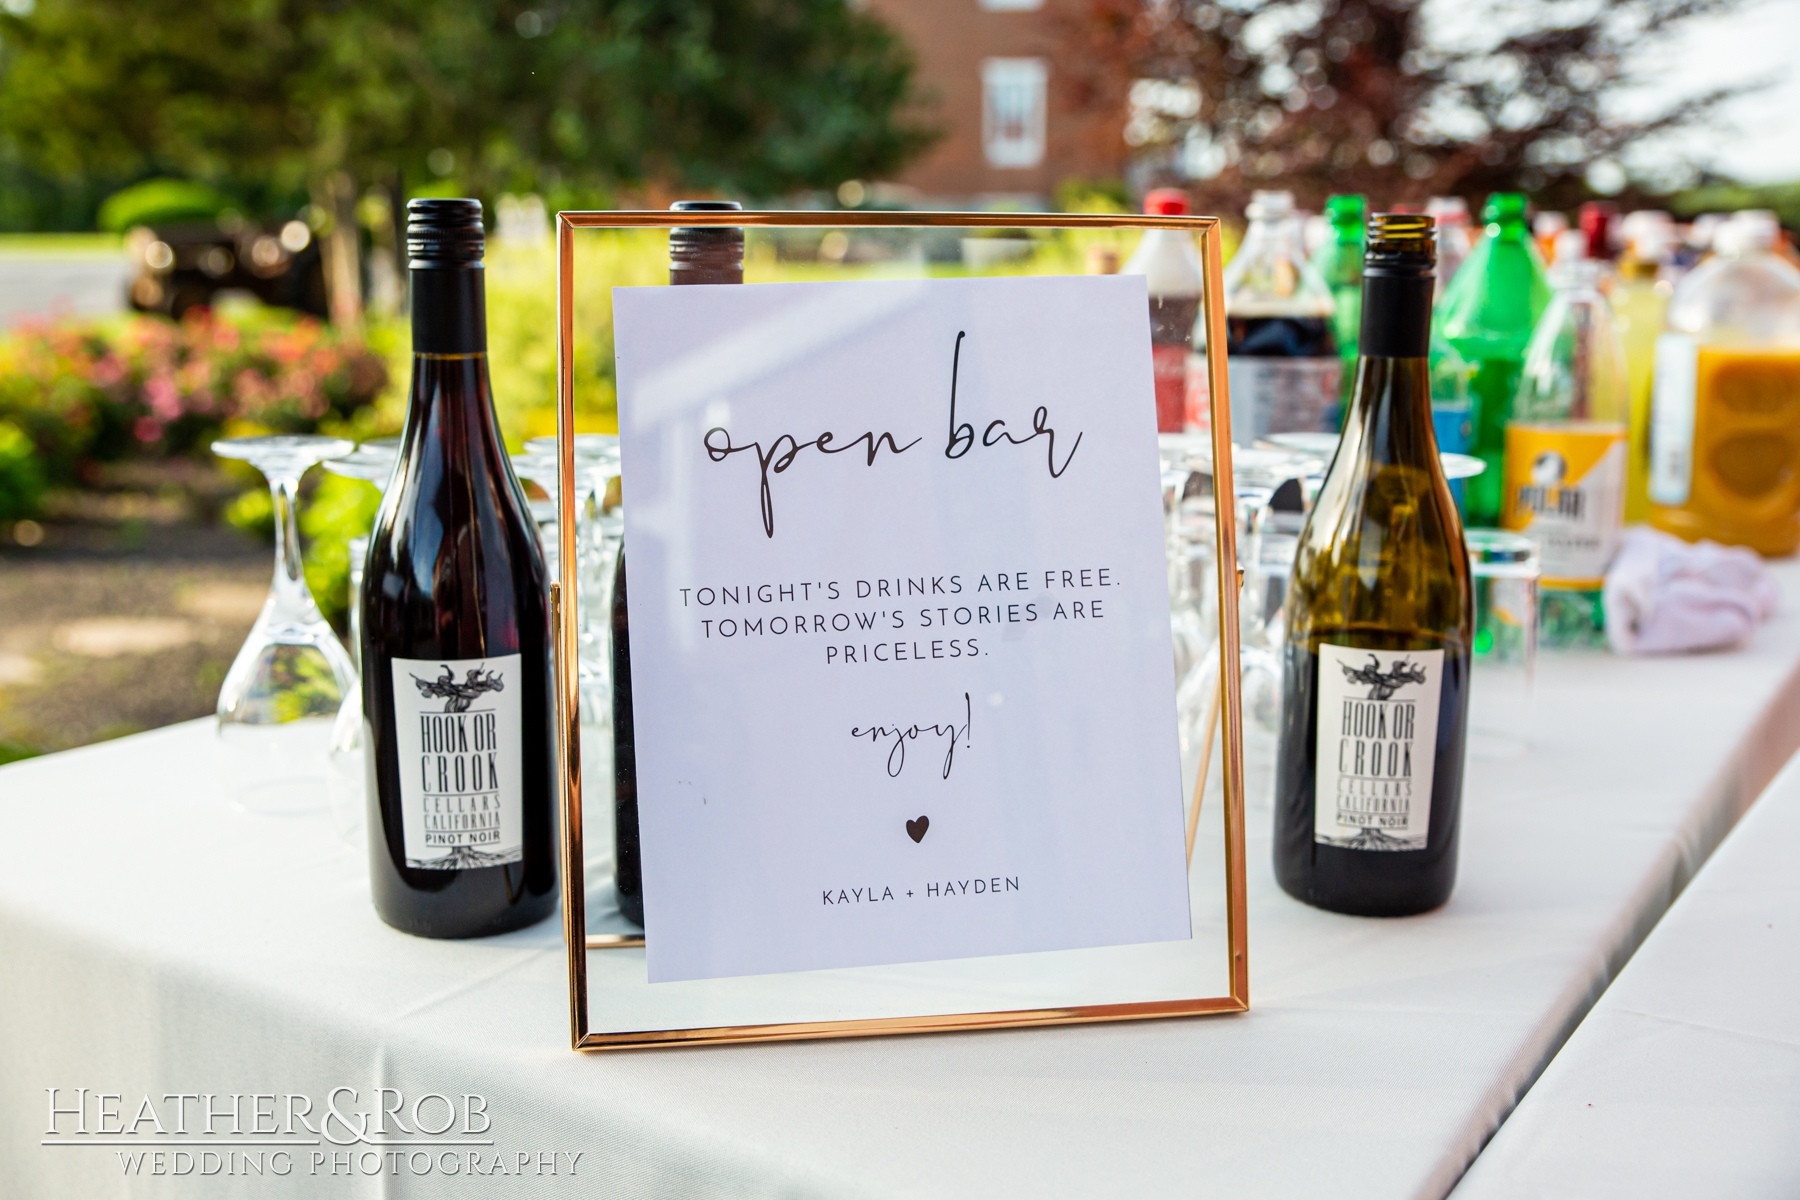 open bar
TONIGHT'S DRINKS ARE FREE.
TOMORROW'S STORIES ARE
PRICELESS.
enjoy!
KAYLA + HAYDEN
HOOK OR
CROOK
CELLARS
CALIFORNIA
PINOT NOIR
HOOK OR
CROOK
CELLARS
CALIFORNIA
PINOT NOIR
POLAR
HEATHER&ROB
WEDDING PHOTOGRAPHY